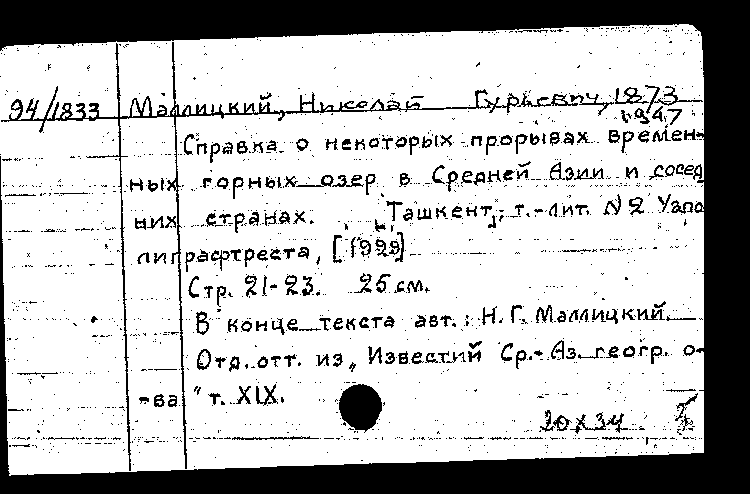 94/1833 Маллицкий, Николай Гурьевич, 1873
1947
Справка о некоторых прорывах времен-
ных горных озер в Средней Азии и сосед
них странах. Ташкент, т.-лит. №2 Узпо
лиграфтреста, [1929]
Стр. 21-23. 25 см.
В конце текста авт.: Н.Г. Маллицкий.
Отд. отт. из „Известий Ср.-Аз. геогр. о-
-ва" т. XIX.
20 X 34